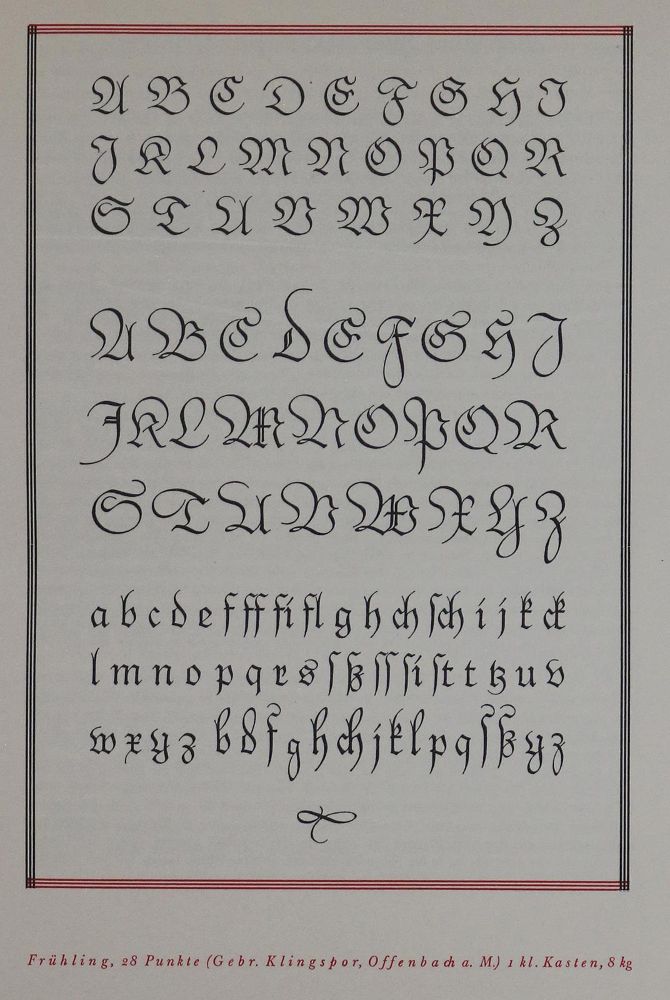 A B C D E F G H I
J K L M N O P Q R
S T U V W X Y Z
A B C D E F G H I
J K L M N O P Q R
S T U V W X Y Z
a b c d e f ff fi fl g h ch ſch i j k ck
l m n o p q r s ſ ß ſſ ſi ſt t tz u v
w x y z b d f g h ch j k l p q ſ ß y z
Frühling, 28 Punkte (Gebr. Klingspor, Offenbach a. M.) 1 kl. Kasten, 8 kg